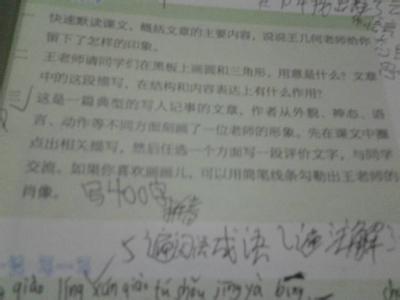 快速默读课文，概括文章的主要内容，说说王几何老师给你
留下了怎样的印象。
王老师请同学们在黑板上画圆和三角形，用意是什么？文章
中的这段描写，在结构和内容表达上有什么作用？
这是一篇典型的写人记事的文章，作者从外貌、神态、语
言、动作等不同方面刻画了一位老师的形象。先在课文中圈
点出相关描写，然后任选一个方面写一段评价文字，与同学
交流。如果你喜欢画画儿，可以用简笔线条勾勒出王老师的
肖像。 写400字
5遍词语成语 1遍注解
写一写
qiào líng xùn qiào tú shǒu jīng yà bīng